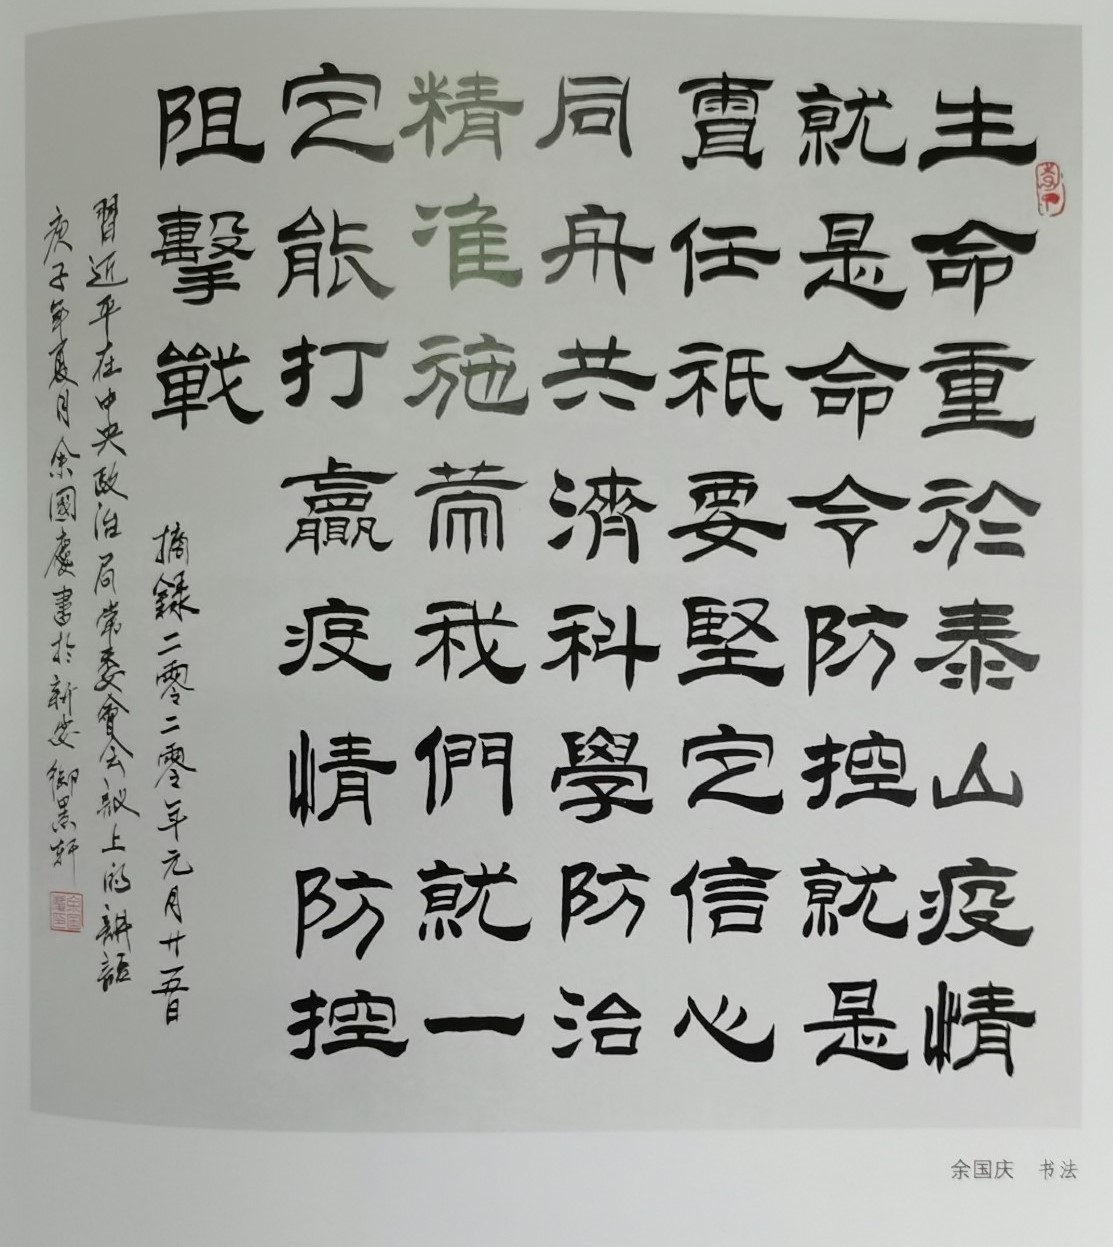 生命重於泰山疫情
就是命令防控就是
責任祇要堅定信心
同舟共濟科學防治
精准施策我們就一
定能打贏疫情防控
阻擊戰
摘錄二零二零年元月廿五日
習近平在中央政治局常委會会議上的講話
庚子年夏月余國慶書於新安御墨軒
余国庆 书法